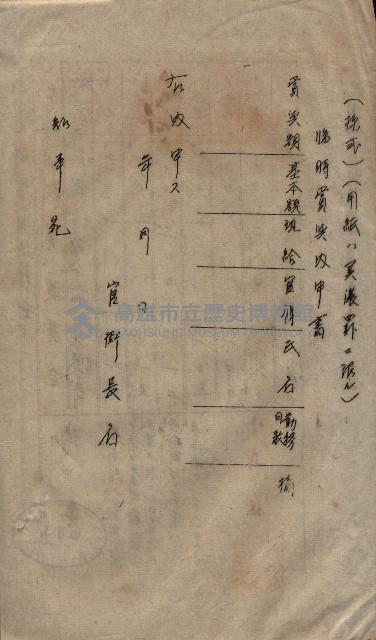 (樣式)(用紙ハ美濃罫ニ限ル)
臨時賞與内申書
賞與額
基本額
現給
官職氏名
勤務日数
摘
右内申ス
年 月 日
官衙長名
知事宛
高雄市立歷史博物館
KAOHSIUNG MUSEUM OF HISTORY